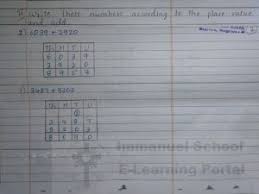 write these numbers according to the place value
and add
2) 6037 + 2920
Th H T U
6 0 3 7
2 9 2 0
8 9 5 7
3487 + 5203
Th H T U
3 4 8 7
5 2 0 3
8 6 9 0
Immanuel School
E-Learning Portal